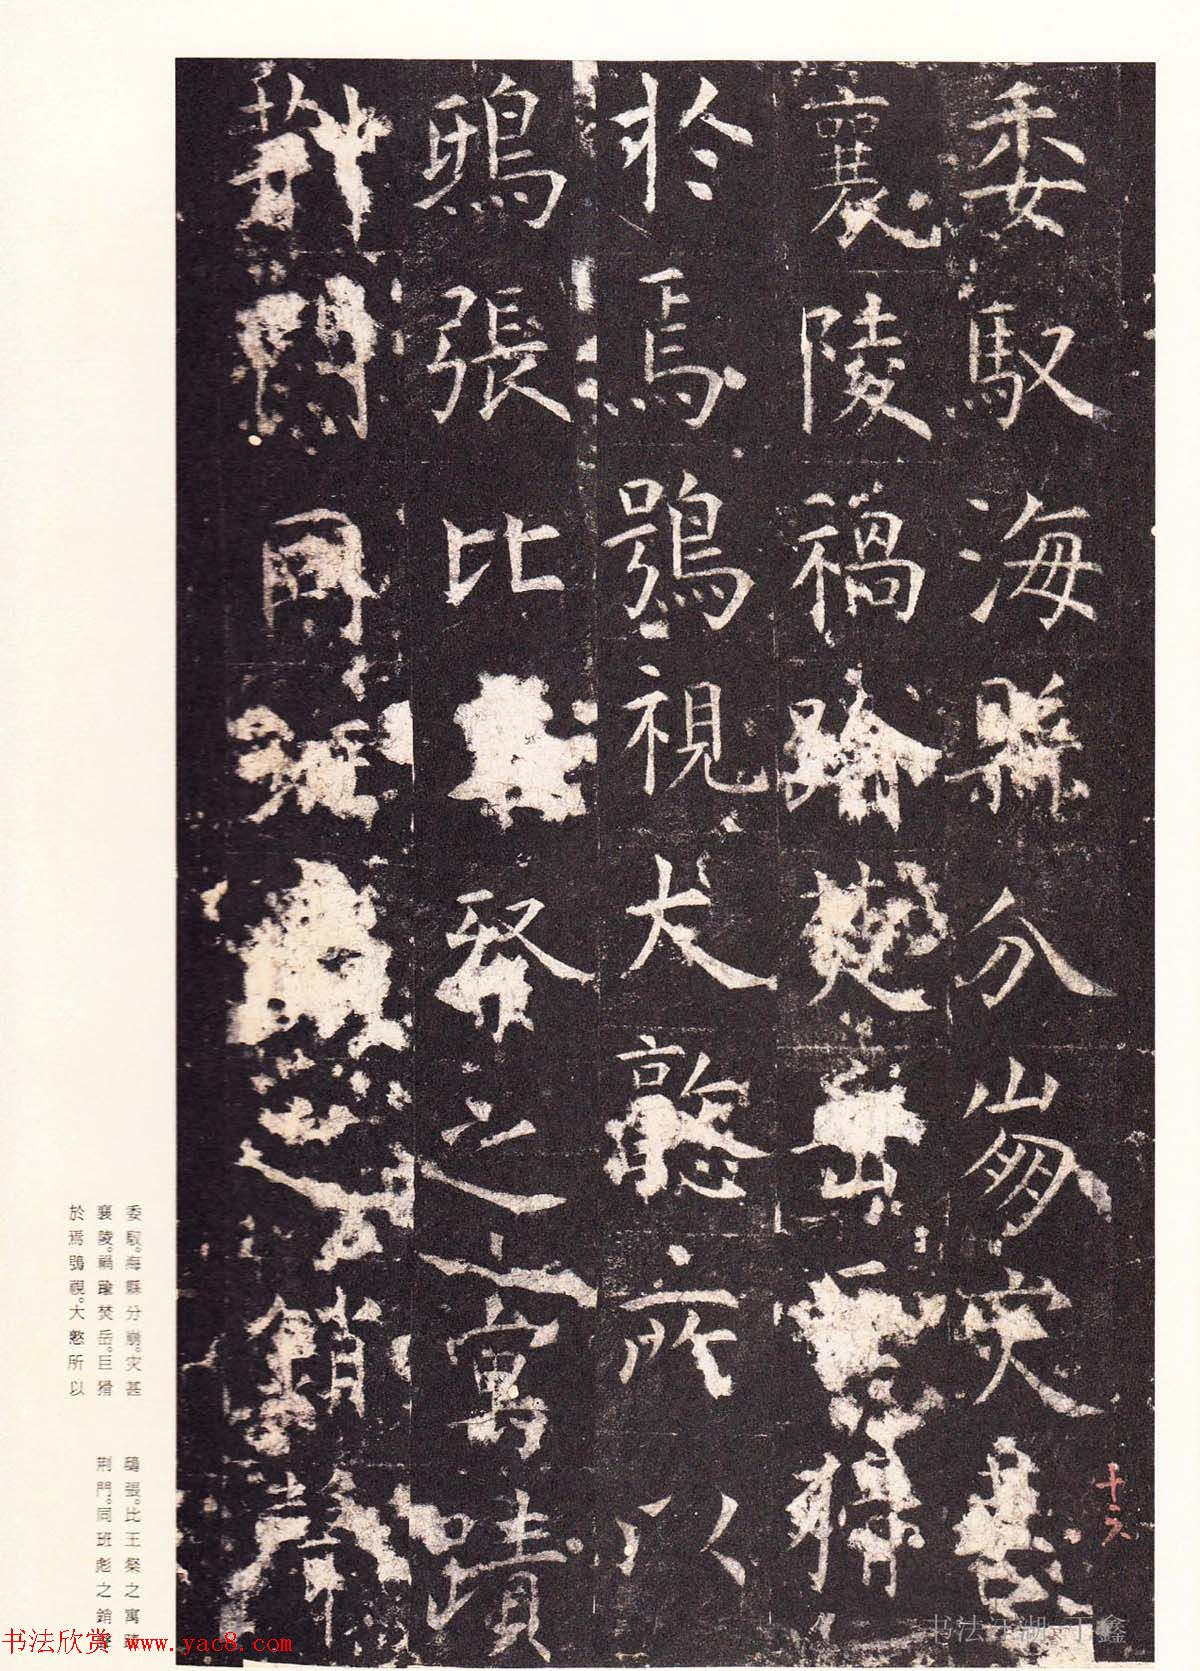 委馭海縣分崩災甚
襄陵禍踰焚岳巨猾
於焉鶚視大憝所以
鴟張比王粲之寓蹟
荊門同班彪之銷聲
十六
委馭。海縣分崩。災甚
襄陵。禍踰焚岳。巨猾
於焉鶚視。大憝所以
鴟張。比王粲之寓蹟
荊門。同班彪之銷聲
书法欣赏 www.yac8.com
书法江湖 于鑫